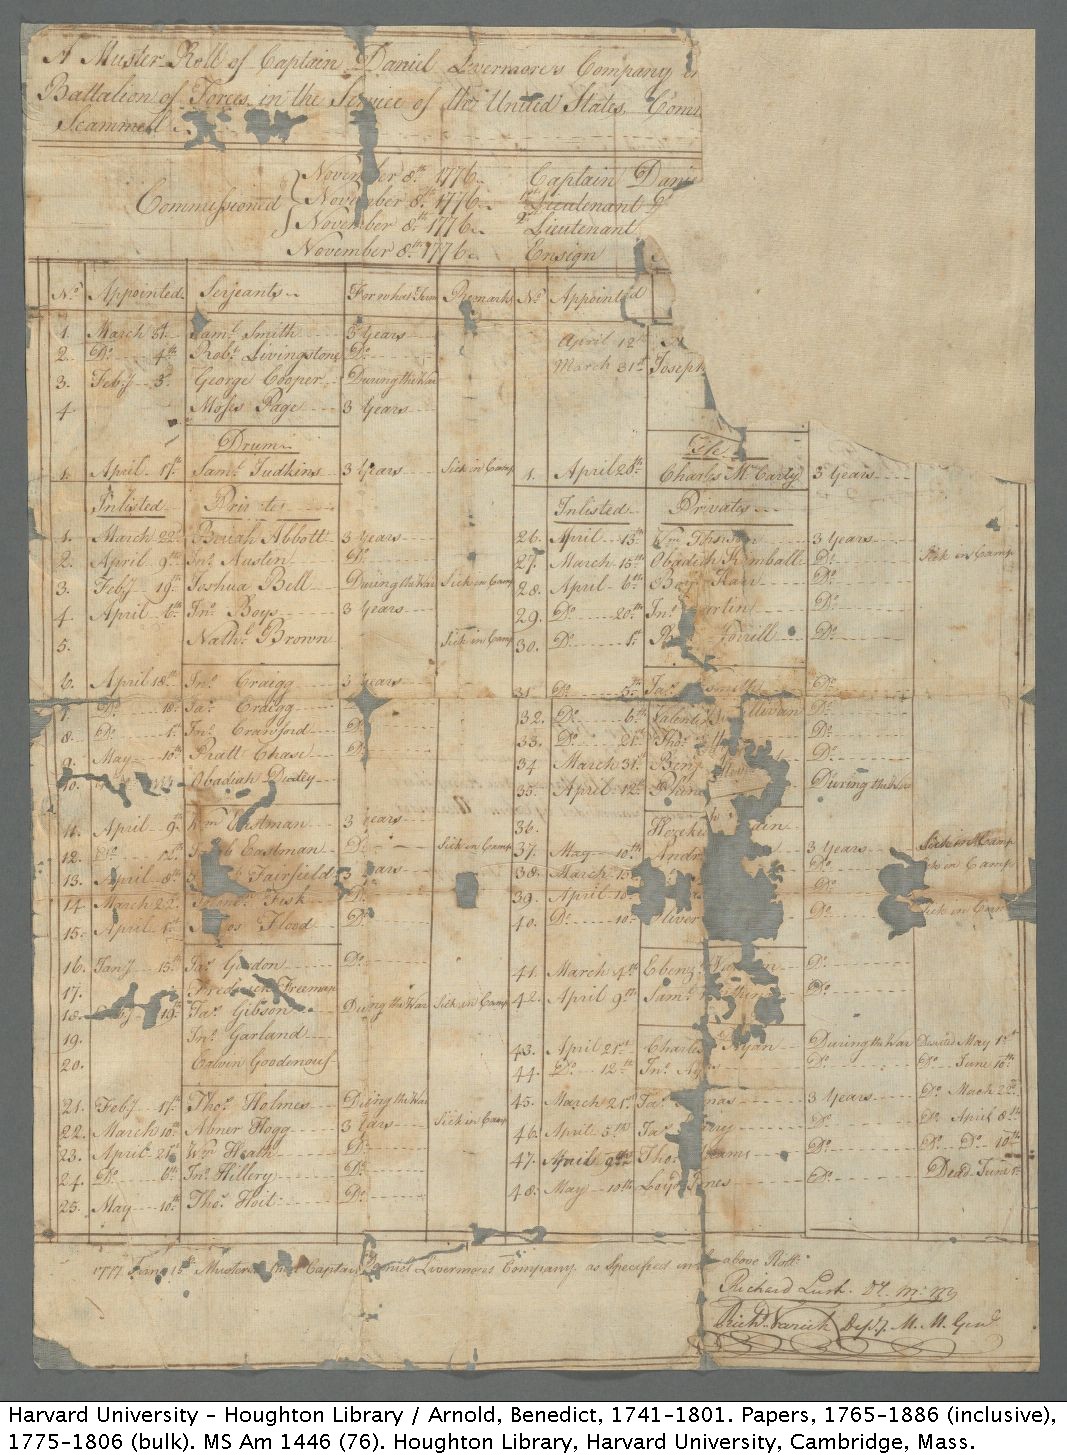 A Muster Roll of Captain Daniel Livermore's Company
Battalion of Forces in the Service of the United States, Comm
Scammell
Commissioned
November 8th 1776 Captain Danie
November 8th 1776 1st Lieutenant
November 8th 1776 2d Lieutenant
November 8th 1776 Ensign
No. Appointed Serjeants For what Term Remarks No. Appointed
1. March Saml. Smith 3 Years April 12th
2. Do. 4th Robt. Livingstone Do. March 31st Joseph
3. Feby 3 George Cooper During the War
4 Moses Page 3 Years
Drum
1. April 17th Saml. Judkins 3 Years Sick in Camp 1. April 28th Charles Mc Carty 3 Years
Inlisted Privates Inlisted Privates
1. March 22d Beriah Abbott 3 Years 26. April 13th Wm. 3 Years
2. April 9th Jno. Austen Do. 27. March 15th Obadiah Kimball Do. Sick in Camp
3. Feby 19th Joshua Bell During the War Sick in Camp 28. April 6th Do.
4. April 6th Jno. Boys 3 Years 29. Do. 20th Jno. artin Do.
5. Nathl. Brown Sick in Camp 30. Do. 1st Do.
6. April 18th Jno. Craigg 3 Years 31. Do. 5th Jas. Do.
7. Do. 18 Jas. Craigg 32. Do. 6th Valentine Sullivan Do.
8. Do. 1st Jno. Crawford Do. 33. Do. 21st Thos. Do.
9. May 10th Pratt Chase Do. 34 March 31. Benj Do.
10. Obadiah Dudey 35. April 12th During the War
11. April 9th Wm. Eastman 3 years 36. Hezeki
12. Do. Eastman Do. Sick in Camp 37. May 10th Andr 3 Years Sick in Camp
13. April 8th Fairfield 3 ears 38. March 15 Do. ick in Camp
14. March 22 Fisk Do. 39. April 10 Do.
15. April 1st os Flood Do. 40. Do. 10th Oliver Do. Sick in Cam
16. Jany 15th Jas. Gordon Do. 41. March 4th Ebenz. Do.
17. Frederick Freeman
18. 19th Jas. Gibson During the War Sick in Camp 42. April 9th Saml. Do.
19. Jno. Garland
20. Calvin Goodenouf 43. April 21st Charles Ryan During the War Deserted May 1st
44. Do. 12th Jno. Do. Do. June 10th
21. Feby 17th Thos. Holmes During the War 45. March 21st Jas. mas 3 Years Do. March 22d
22. March 10th Abner Hogg 3 Years Sick in Camp 46. April 5th Jas. Do. Do. April 8th
23. April 21st Wm. Heath Do. 47. April 9th Thos. dams Do. Do. Do. 10th
24. Do. 6th Jno. Hillery Do. 48. May 10th Loyd Jones Do. Dead June 1
25. May 10th Thos. Hoit Do.
1777 15th Mustered Captain Daniel Livermore's Company as Specified in above Roll
Richard Lush. Dt. M. M.
Richd. Varick Depy. M. M. Genl.
Harvard University – Houghton Library / Arnold, Benedict, 1741–1801. Papers, 1765–1886 (inclusive),
1775–1806 (bulk). MS Am 1446 (76). Houghton Library, Harvard University, Cambridge, Mass.